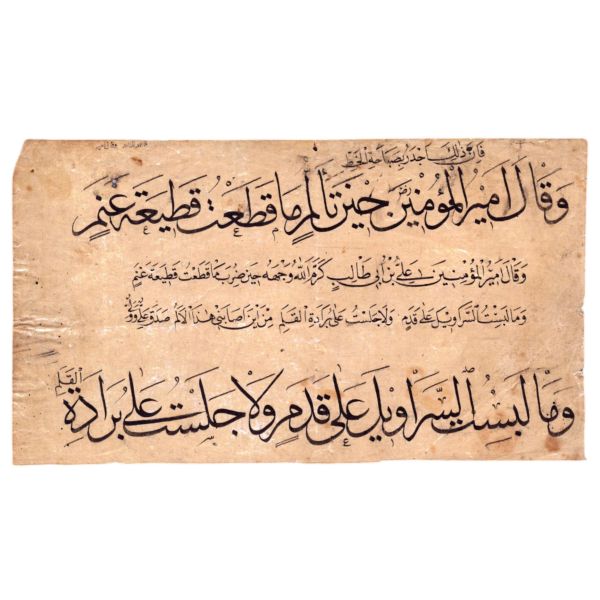 فان ذلك اجدر بصباحة الخط
وقال امير المؤمنين حين تالم ما قطعت قطيعة غنم
وقال امير المؤمنين علي بن ابي طالب كرم الله وجهه حين ضرب ما قطعت قطيعة غنم
وما لبست السراويل على قدم ولا جلست على برادة القلم من اين اصابني هذا الالم صدق علي
وما لبست السراويل على قدم ولا جلست على برادة
القلم